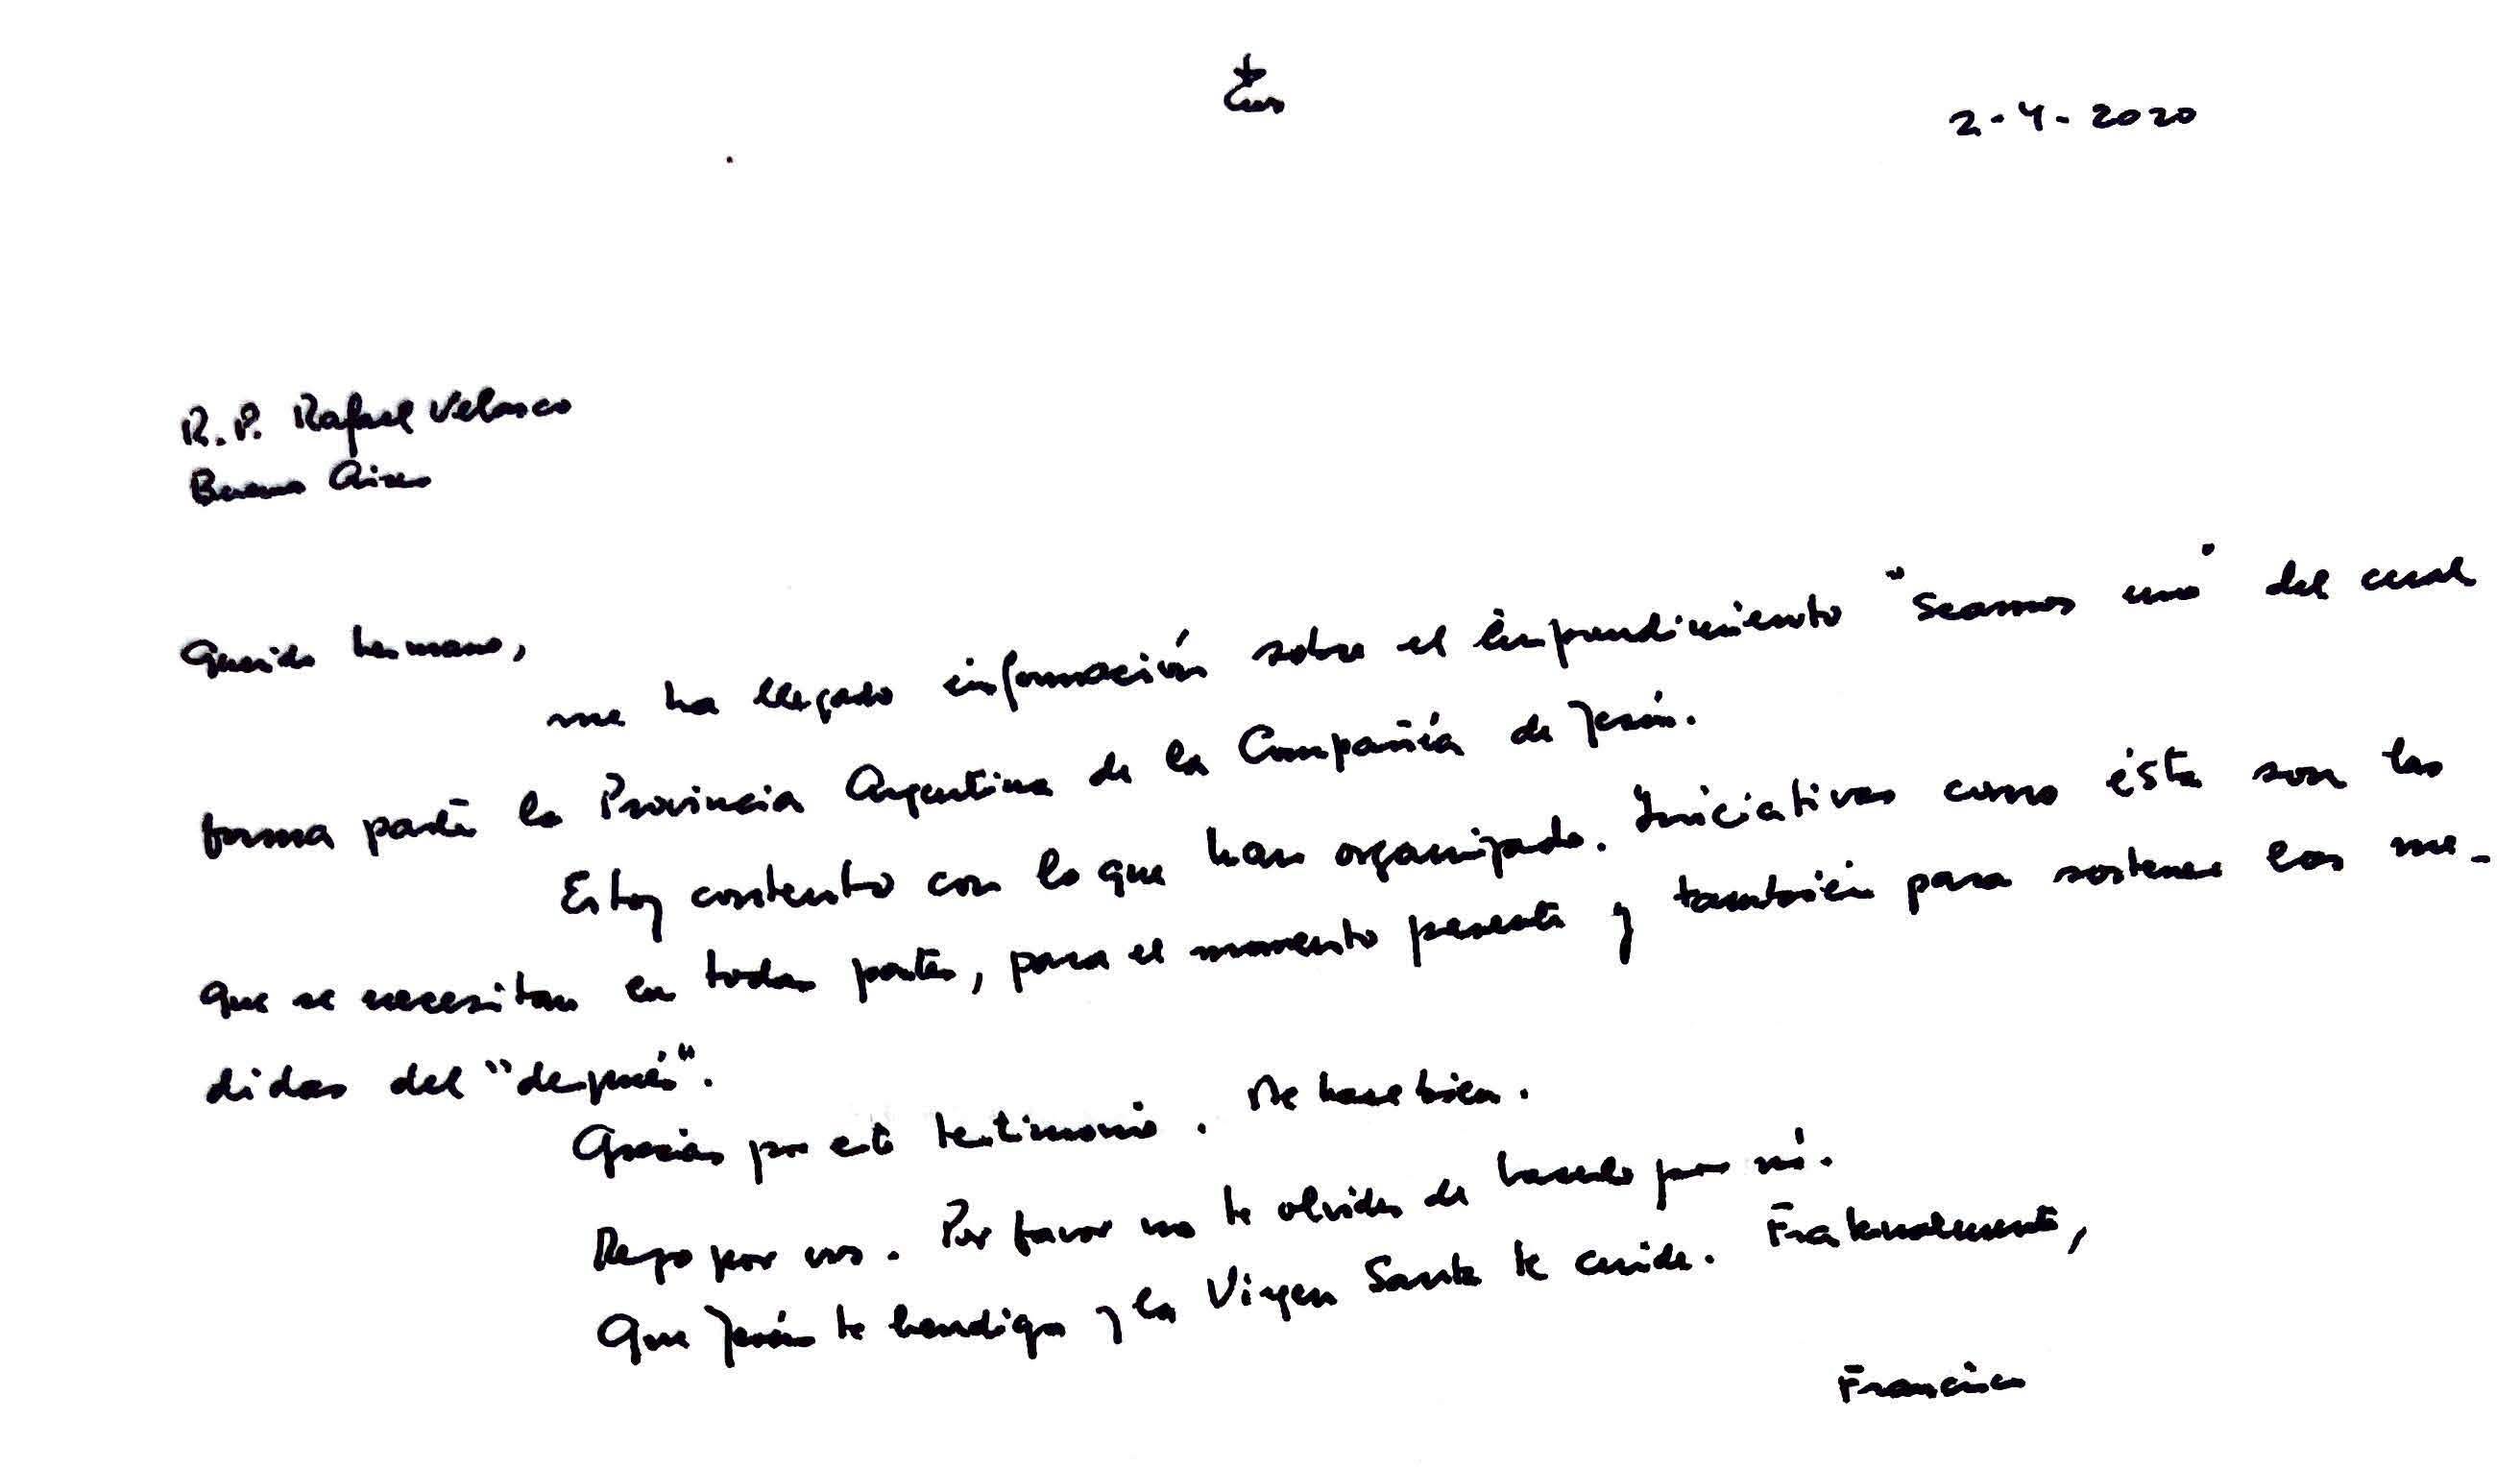 2-4-2020
R. P. Rafael Velasco
Buenos Aires
Querido hermano,
me ha llegado información sobre el emprendimiento "Seamos uno" del cual
forma parte la Provincia Argentina de la Compañía de Jesús.
Estoy contento con lo que han organizado. Iniciativas como ésta son las
que se necesitan en todas partes, para el momento presente y también para sostener las me-
didas del "después".
Gracias por este testimonio. Me hace bien.
Rezo por vos. Por favor no te olvides de hacerlo por mí.
Que Jesús te bendiga y la Virgen Santa te cuide. Fraternalmente,
Francisco